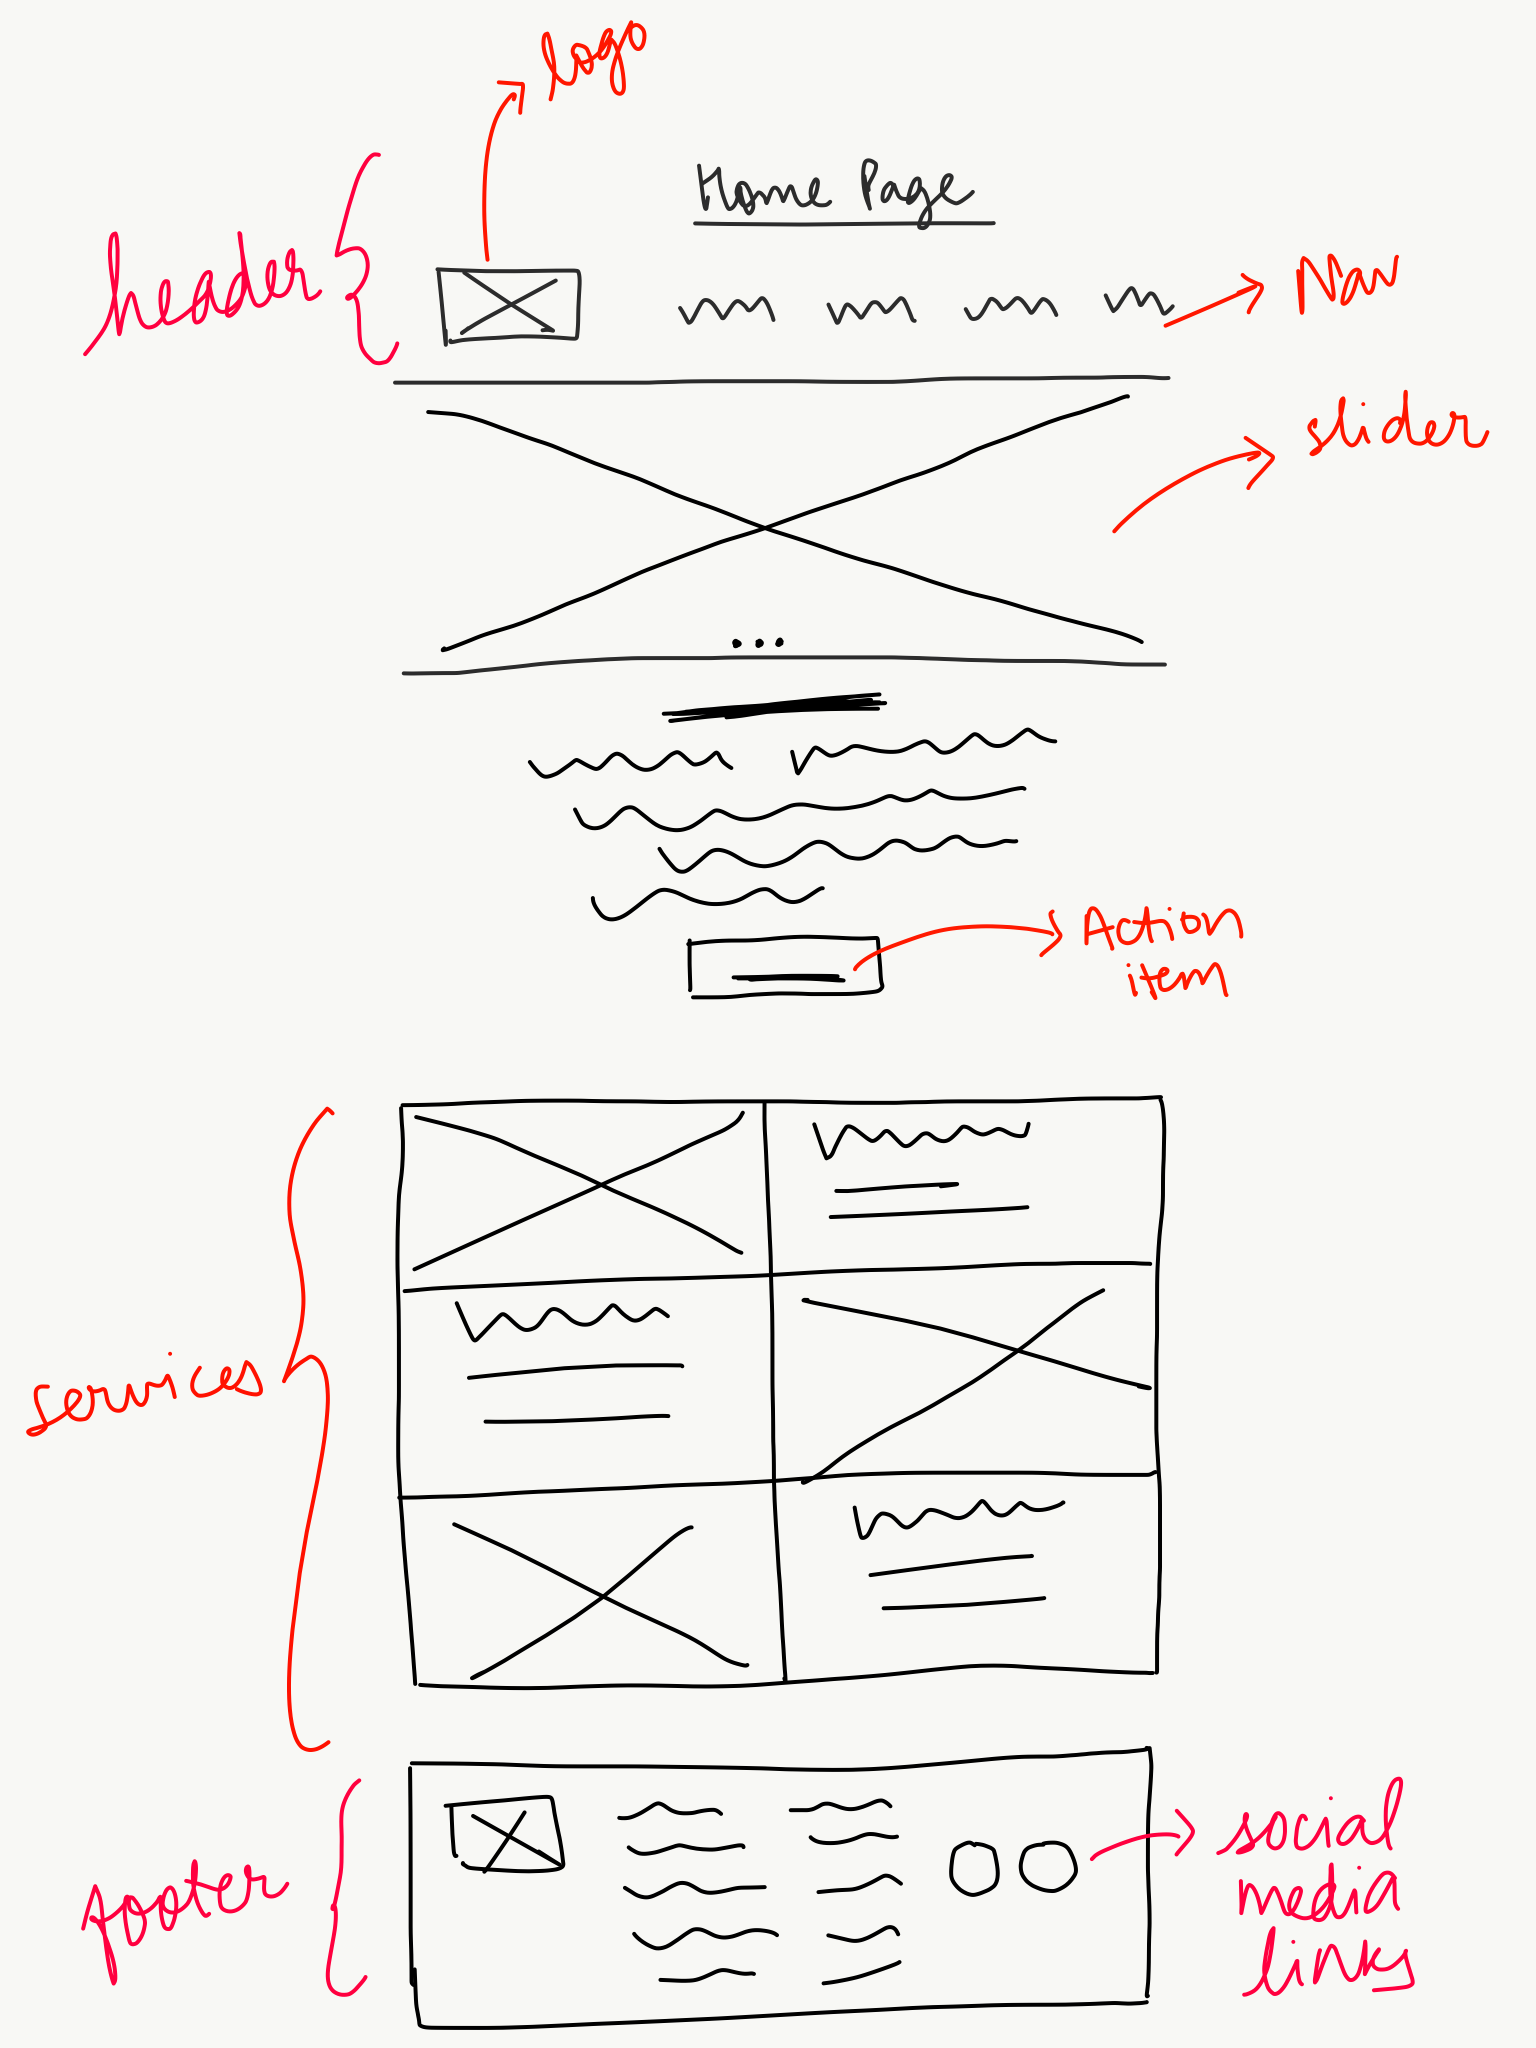 logo
Home Page
header
Nav
slider
Action
item
services
footer
social
media
links